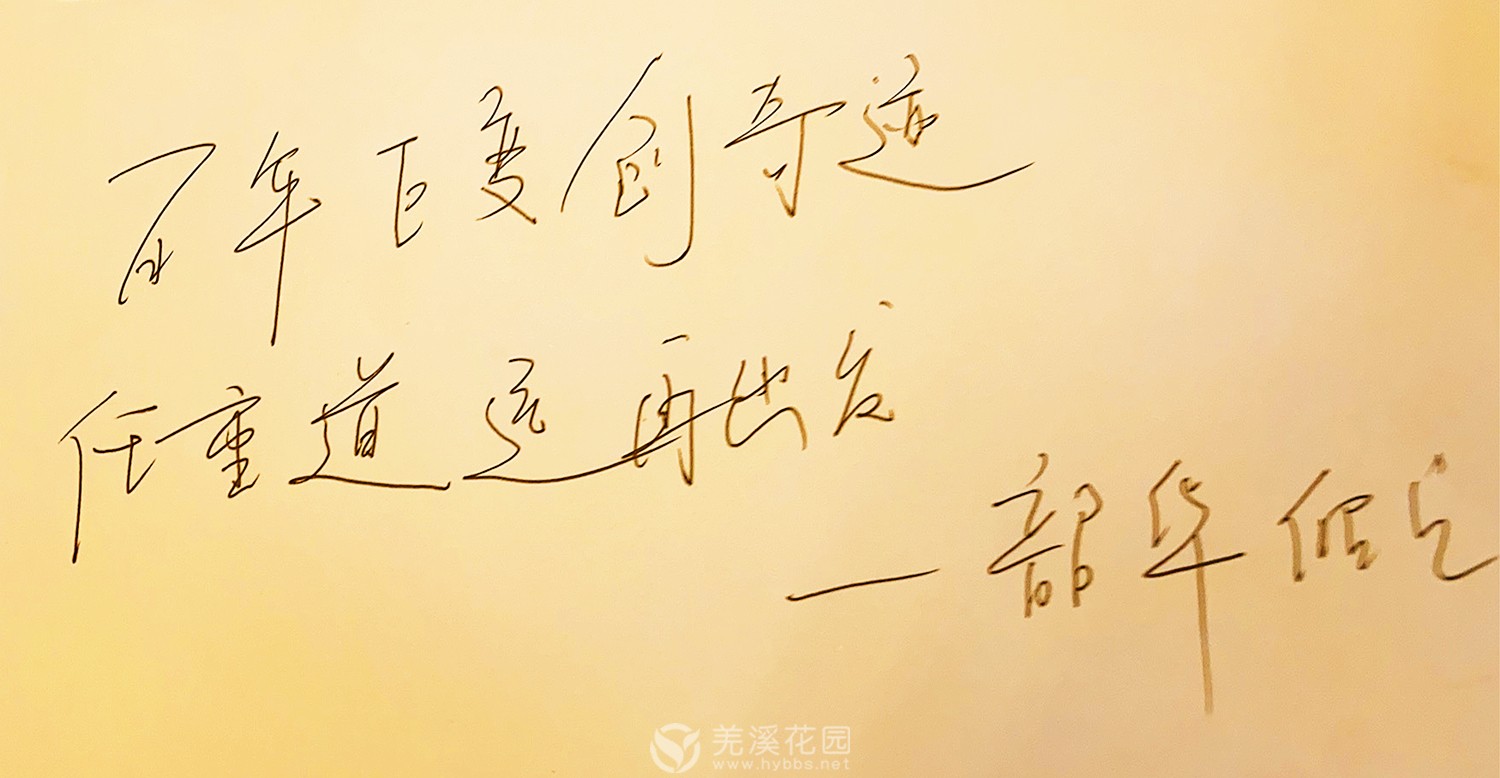 百年巨变创奇迹
任重道远再出发
一韶华倾负
羌溪花园
www.hybbs.net